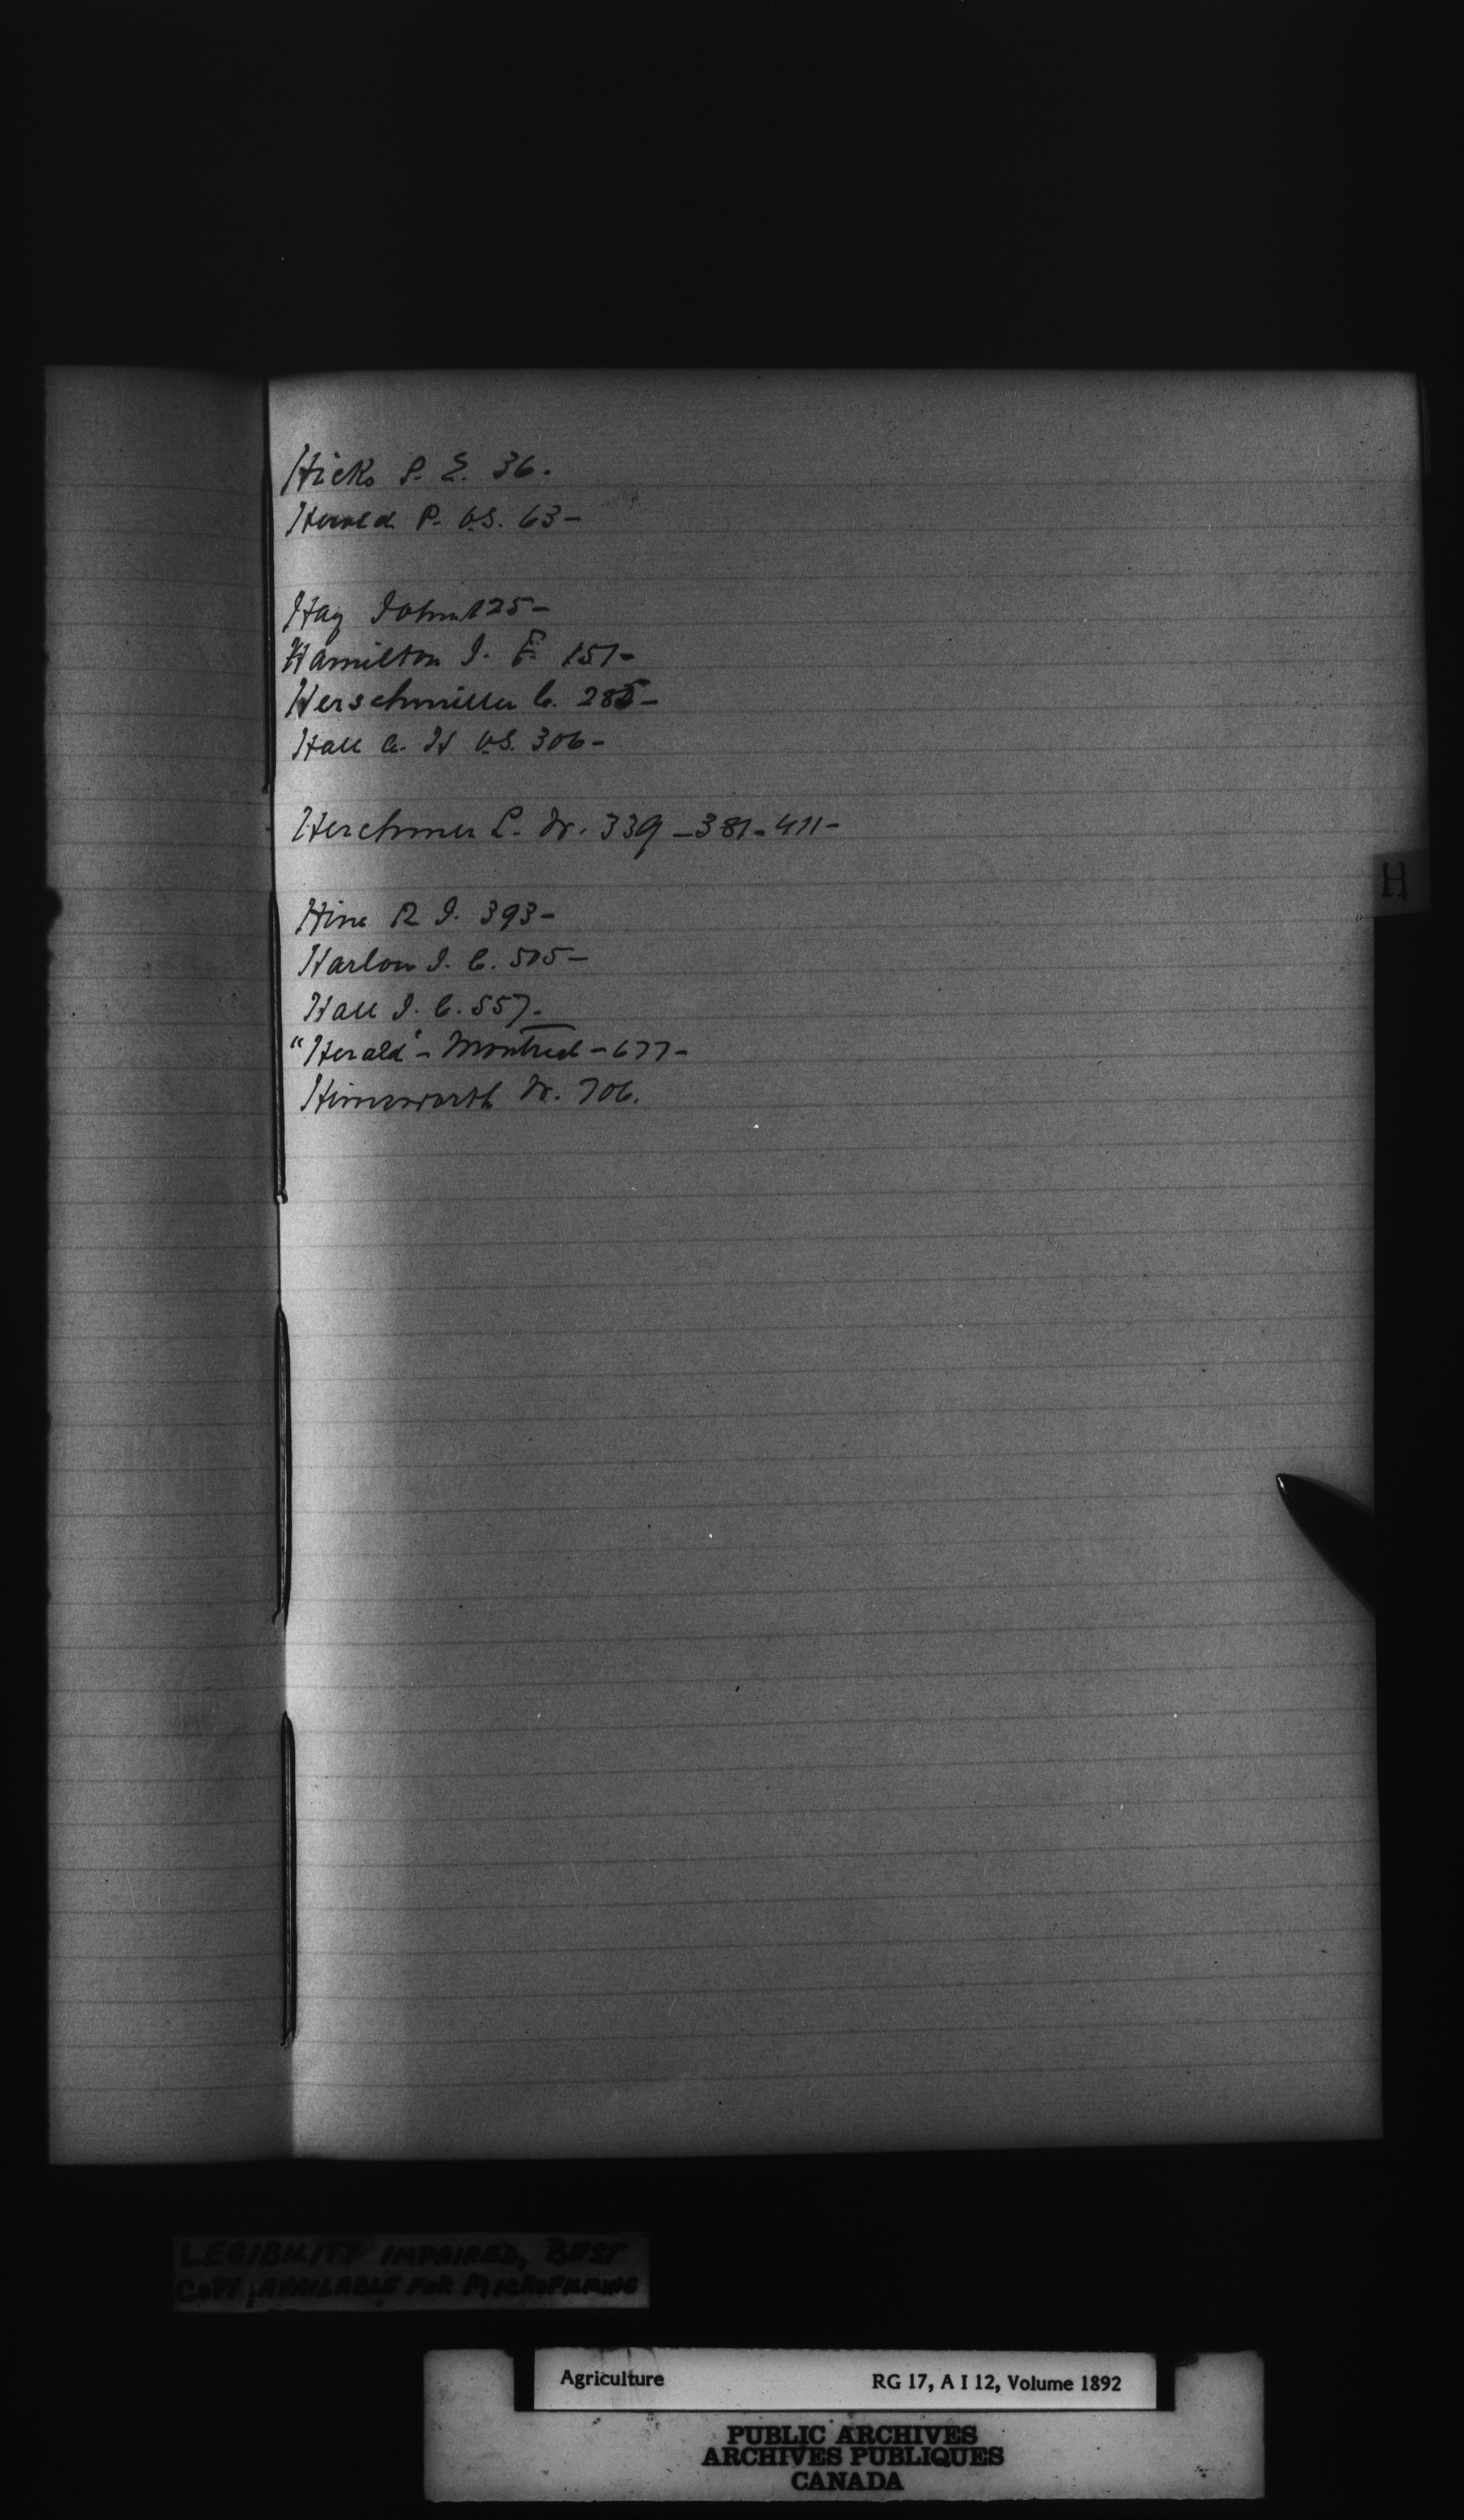 Hicks P. E. 36.
Herold P. V.S. 63-
Hay John 125-
Hamilton J. F. 151-
Herschmiller C. 285-
Hall A. H V.S. 306-
Herchmer L. W. 339-381-411-
H
Hine R J. 393-
Harlow J. C. 505-
Hall J. C. 557-
"Herald" - Montreal - 677-
Himsworth W. 706.
LEGIBILITY IMPAIRED, BEST
COPY AVAILABLE FOR MICROFILMING
Agriculture RG 17, A I 12, Volume 1892
PUBLIC ARCHIVES
ARCHIVES PUBLIQUES
CANADA